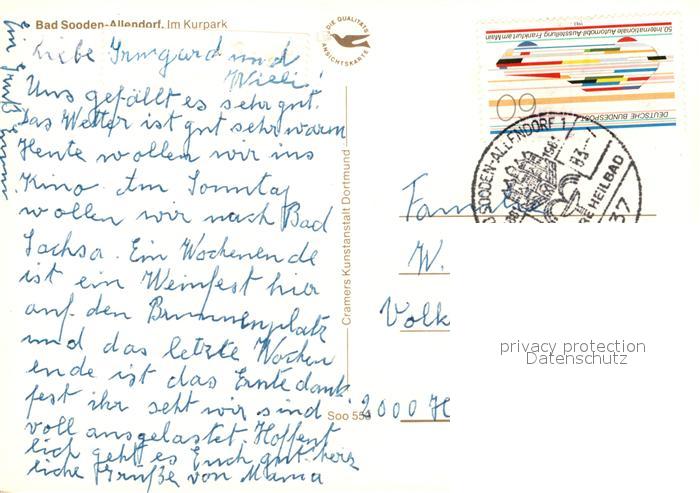 Bad Sooden-Allendorf. Im Kurpark
Liebe Irmgard und
Willi!
Uns gefällt es sehr gut.
Das Wetter ist gut sehr warm
Heute wollen wir ins
Kino Am Sonntag
wollen wir nach Bad
Sachsa. Ein Wochenende
ist ein Weinfest hier
auf den Brunnenplatz
und das letzte Wochen
ende ist das Erntedank
fest ihr seht wir sind
voll ausgelastet. Hoffent
lich geht es Euch gut. herz
liche Grüße von Mama
ein Gruß
DIE QUALITÄTS
ANSICHTSKARTE
Cramers Kunstanstalt Dortmund
Soo 553
50. Internationale Automobil-Ausstellung Frankfurt am Main
1983
60
DEUTSCHE BUNDESPOST
SOODEN-ALLENDORF 1
83
HEILBAD
37
Familie
W.
Volk
2000 H
privacy protection
Datenschutz